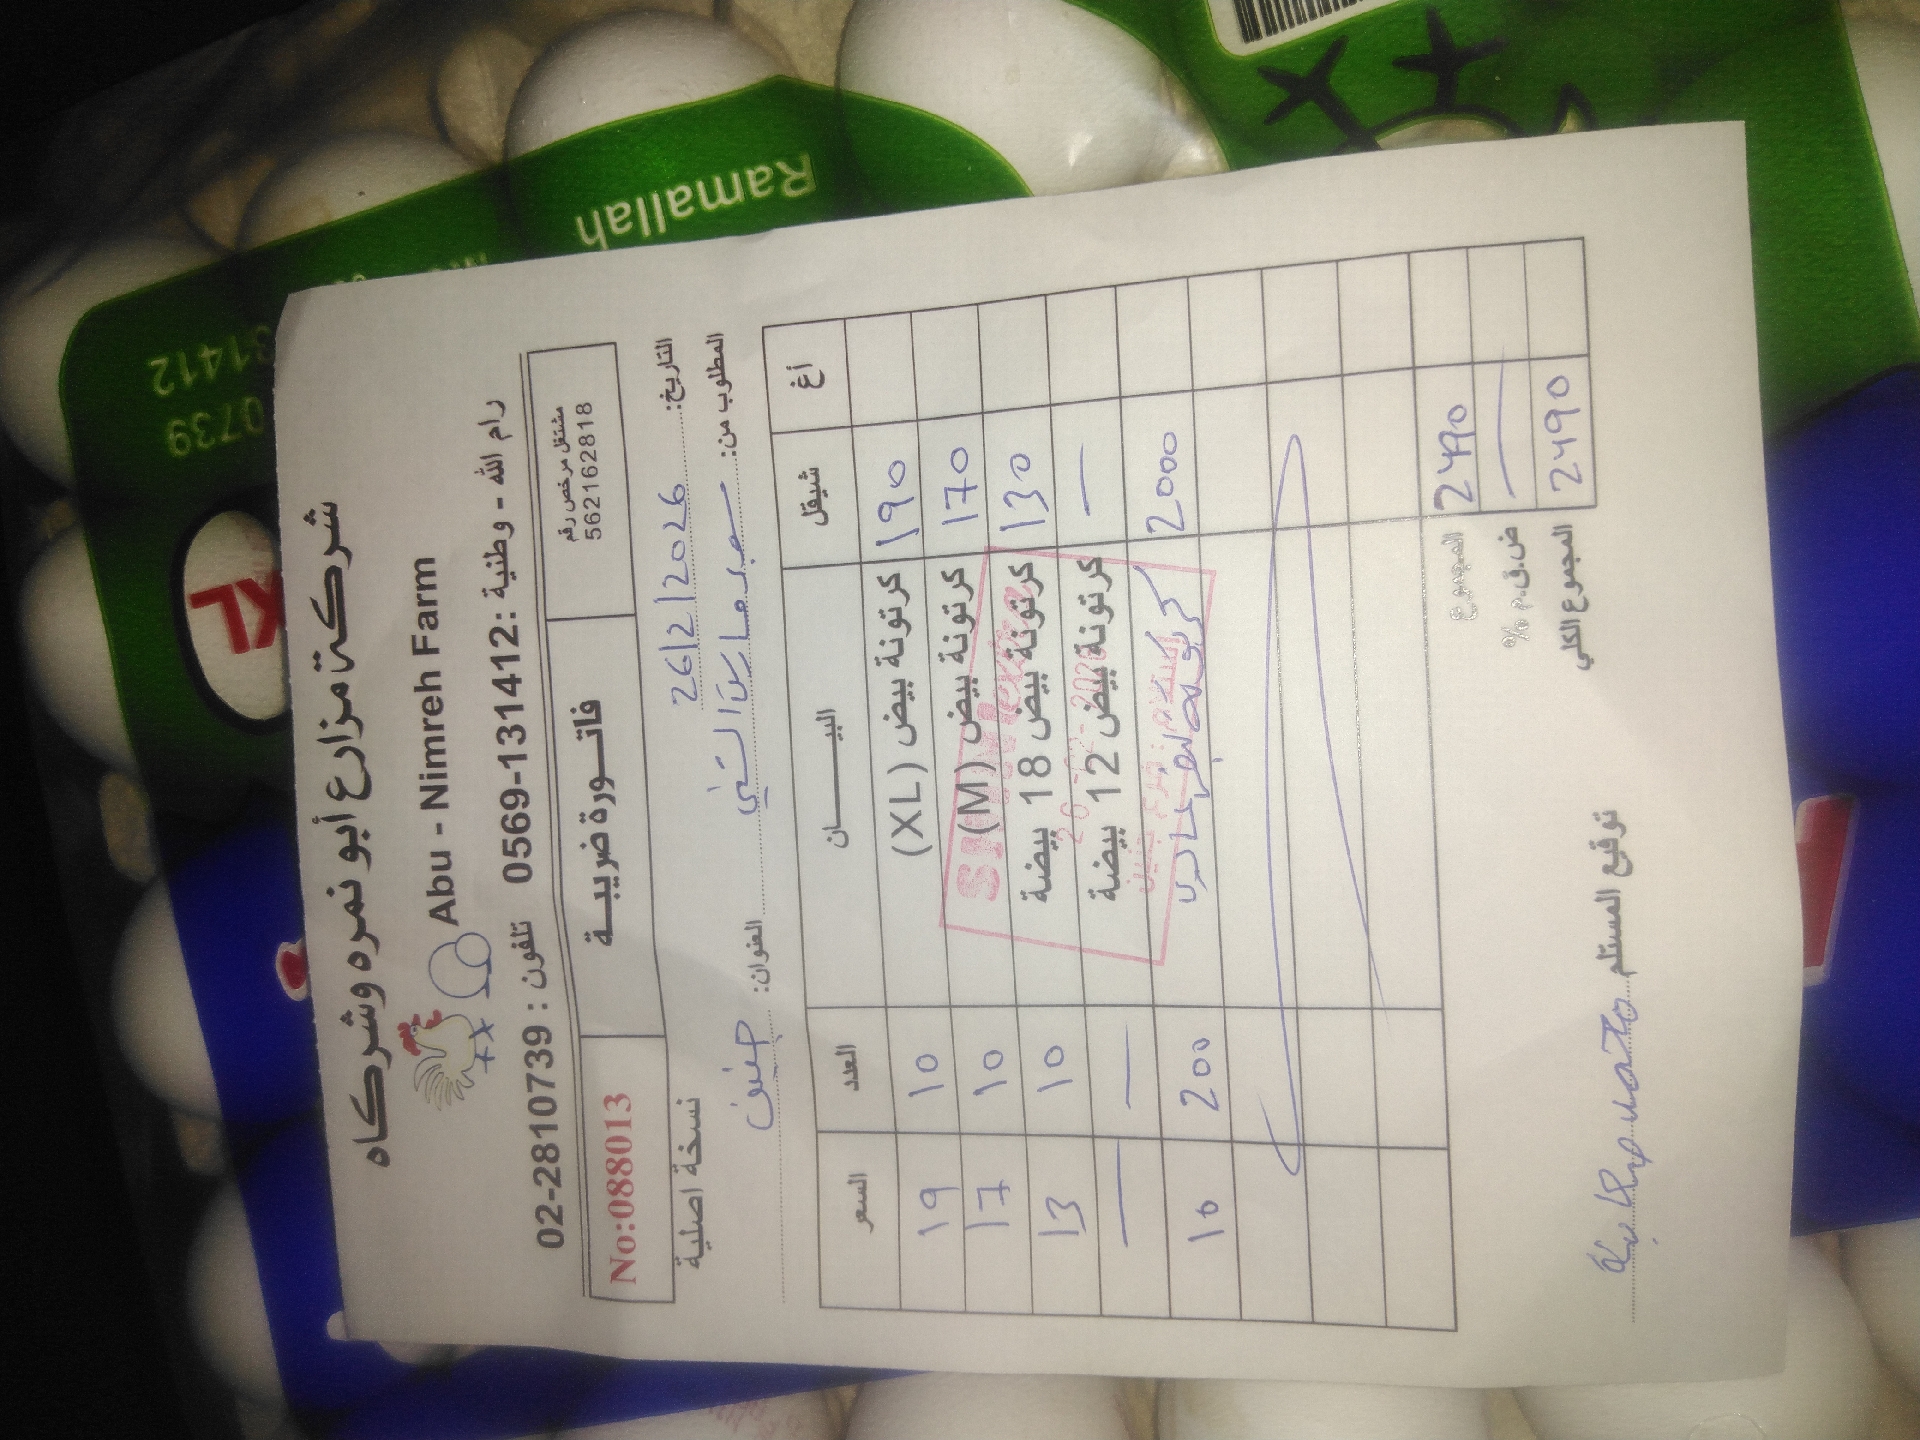 شركة مزارع أبو نمره وشركاه
Abu - Nimreh Farm
رام الله - وطنية : 0569-131412 تلفون : 02-2810739
مشتغل مرخص رقم
562162818
فاتورة ضريبية
No:088013
التاريخ: 26/2/2026
نسخة اصلية
المطلوب من:
العنوان: جنين
أغ شيقل البيان العدد السعر
190 كرتونة بيض (XL) 10 19
170 كرتونة بيض (M) 10 17
130 كرتونة بيض 18 بيضة 10 13
— كرتونة بيض 12 بيضة — —
2000 200 10
المجموع 2490
ض.ق.م % —
المجموع الكلي 2490
توقيع المستلم محمد
Ramallah
31412
0739
XL